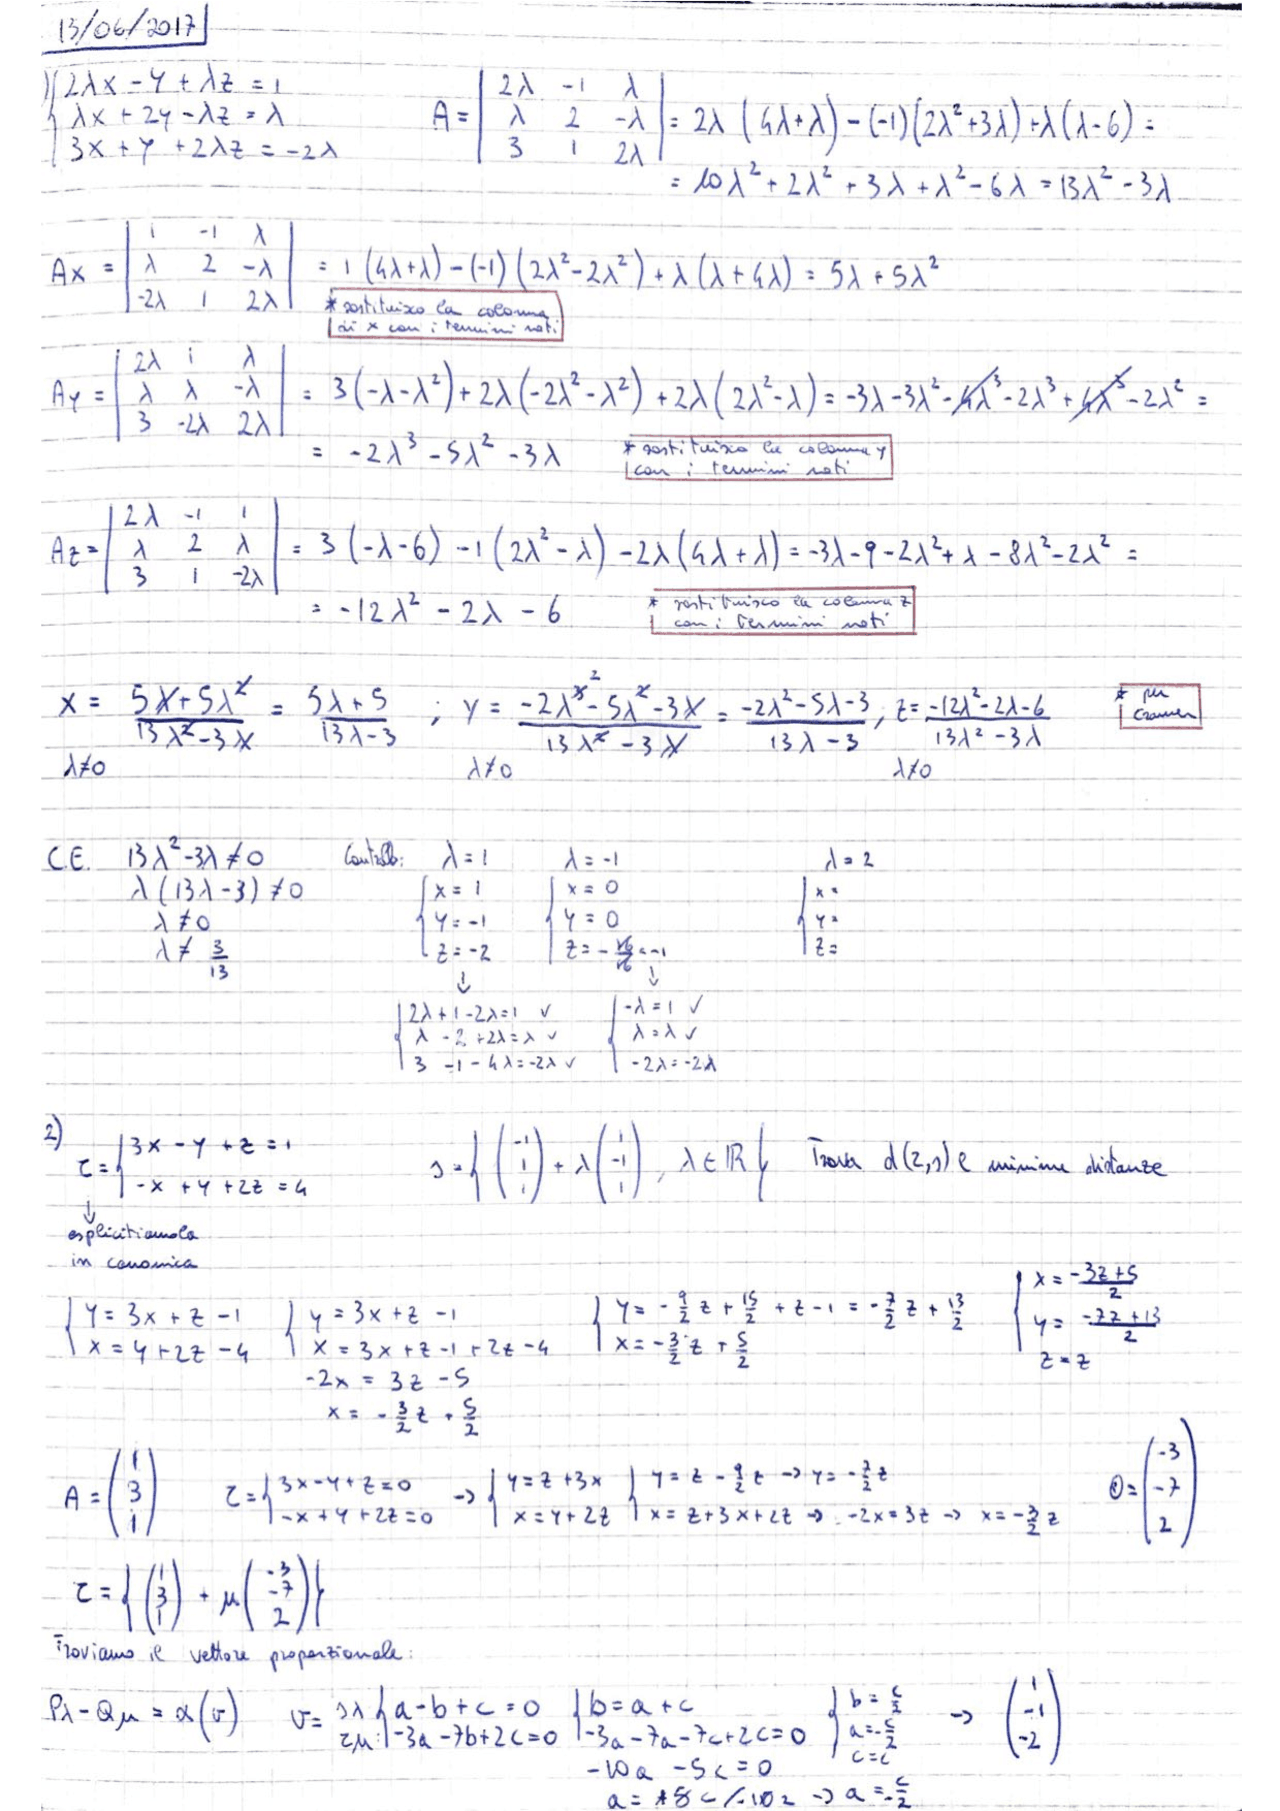 13/06/2017
1) { 2λx - y + λz = 1
λx + 2y - λz = λ
3x + y + 2λz = -2λ
A = | 2λ -1 λ |
| λ 2 -λ |
| 3 1 2λ |
= 2λ (4λ+λ) - (-1)(2λ²+3λ) + λ(λ-6) =
= 10λ² + 2λ² + 3λ + λ² - 6λ = 13λ² - 3λ
Ax = | 1 -1 λ |
| λ 2 -λ |
| -2λ 1 2λ |
= 1 (4λ+λ) - (-1) (2λ²-2λ²) + λ (λ+4λ) = 5λ + 5λ²
* sostituisco la colonna
di x con i termini noti
Ay = | 2λ 1 λ |
| λ λ -λ |
| 3 -2λ 2λ |
= 3(-λ-λ²) + 2λ(-2λ²-λ²) + 2λ(2λ²-λ) = -3λ-3λ²-4λ³-2λ³+4λ³-2λ² =
= -2λ³ - 5λ² - 3λ
* sostituisco la colonna y
con i termini noti
Az = | 2λ -1 1 |
| λ 2 λ |
| 3 1 -2λ |
= 3 (-λ-6) - 1 (2λ²-λ) - 2λ(4λ+λ) = -3λ-9-2λ²+λ-8λ²-2λ² =
= -12λ² - 2λ - 6
* sostituisco la colonna z
con i termini noti
x = 5λ+5λ² / 13λ²-3λ = 5λ+5 / 13λ-3 ; y = -2λ³-5λ²-3λ / 13λ²-3λ = -2λ²-5λ-3 / 13λ-3 ; z = -12λ²-2λ-6 / 13λ²-3λ
* per
Cramer
λ≠0 λ≠0 λ≠0
C.E. 13λ²-3λ ≠ 0
λ(13λ-3) ≠ 0
λ ≠ 0
λ ≠ 3/13
Controllo: λ=1 λ=-1 λ=2
{ x = 1
y = -1
z = -2
↓
{ 2λ+1-2λ=1 ✓
λ -2 +2λ=λ ✓
3 -1 -4λ=-2λ ✓
{ x = 0
y = 0
z = -16/16 = -1
↓
{ -λ=1 ✓
λ=λ ✓
-2λ=-2λ
{ x =
y =
z =
2)
r = { 3x - y + z = 1
-x + y + 2z = 4
s = { (-1 1 1) + λ (1 -1 1), λ ∈ ℝ } Trova d(r,s) e minima distanza
↓
esplicitiamola
in canonica
{ y = 3x + z - 1
x = y + 2z - 4
{ y = 3x + z - 1
x = 3x + z - 1 + 2z - 4
-2x = 3z - 5
x = -3/2 z + 5/2
{ y = -9/2 z + 15/2 + z - 1 = -7/2 z + 13/2
x = -3/2 z + 5/2
{ x = -3z+5 / 2
y = -7z+13 / 2
z = z
A = (1 3 1)
r = { 3x-y+z=0
-x+y+2z=0
→ { y = z + 3x
x = y + 2z
{ y = z - 9/2 z → y = -7/2 z
x = z+3x+2z → -2x=3z → x = -3/2 z
(-3 -7 2)
r = { (1 3 1) + μ (-3 -7 2) }
Troviamo il vettore proporzionale:
Pλ - Qμ = α(v)
v = sλ { a - b + c = 0
rμ: -3a - 7b + 2c = 0
{ b = a + c
-3a - 7a - 7c + 2c = 0
-10a - 5c = 0
a = +5c/-10 → a = -c/2
{ b = c/2
a = -c/2
c = c
→ (1 -1 -2)